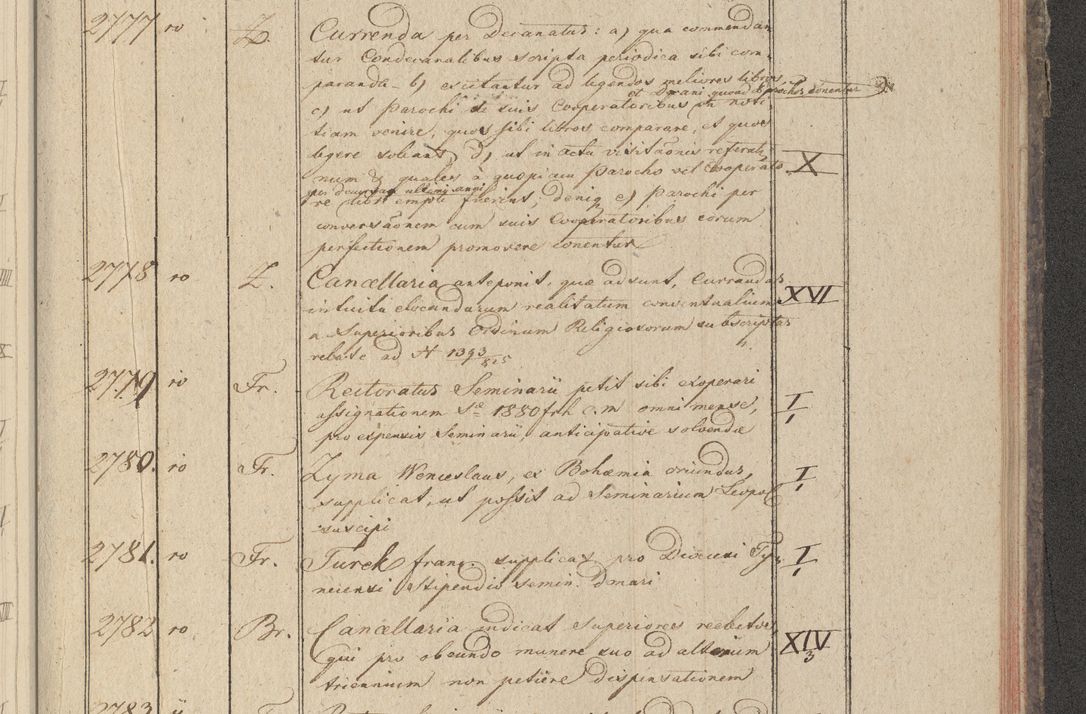 2777 ro Z. Currenda per Decanatus: a) qua commendan
tur Condecanalibus scripta periodica sibi com
paranda – b) excitantur ad legendos meliores libros
et Decani quoad Parochos conentur
c) ut Parochi de suis Cooperatoribus noti
tiam venire, quos sibi libros comparare, et quos
legere soleant, d) ut in actu visitaōnis referatur X
num & quales à quopiam Parocho vel Cooperato
per decursum ultimi anni
re libri empti fuerint, deniq e) Parochi per
conversaōnem cum suis Cooperatoribus eorum
perfectionem promovere conentur
2778 ro Z. Cancellaria anteponit, quæ adsunt, Currandas XVI
intuitu elocandarum realitatum conventualium
a Superioribus Ordinum Religiosorum subscriptas
ad N 1393/815
2779 ro Fr. Rectoratus Seminarii petit sibi exoperari I
assignationem 1880 frh c.m omni mense,
pro expensis Seminarii anticipative solvendæ
2780. ro Fr. Zyma Wenceslaus, ex Bohæmia oriundus, I
supplicat, ut possit ad Seminarium Leopol
suscipi
2781. ro Fr. Turek franc. supplicat pro Diœcesi Ty I
neciensi Stipendio Semin. dmari
2782 ro Br. Cancellaria indicat Superiores reelectos, XIV
3
qui pro obeundo munere suo ad alterum
triennium non petiere dispensationem
2783